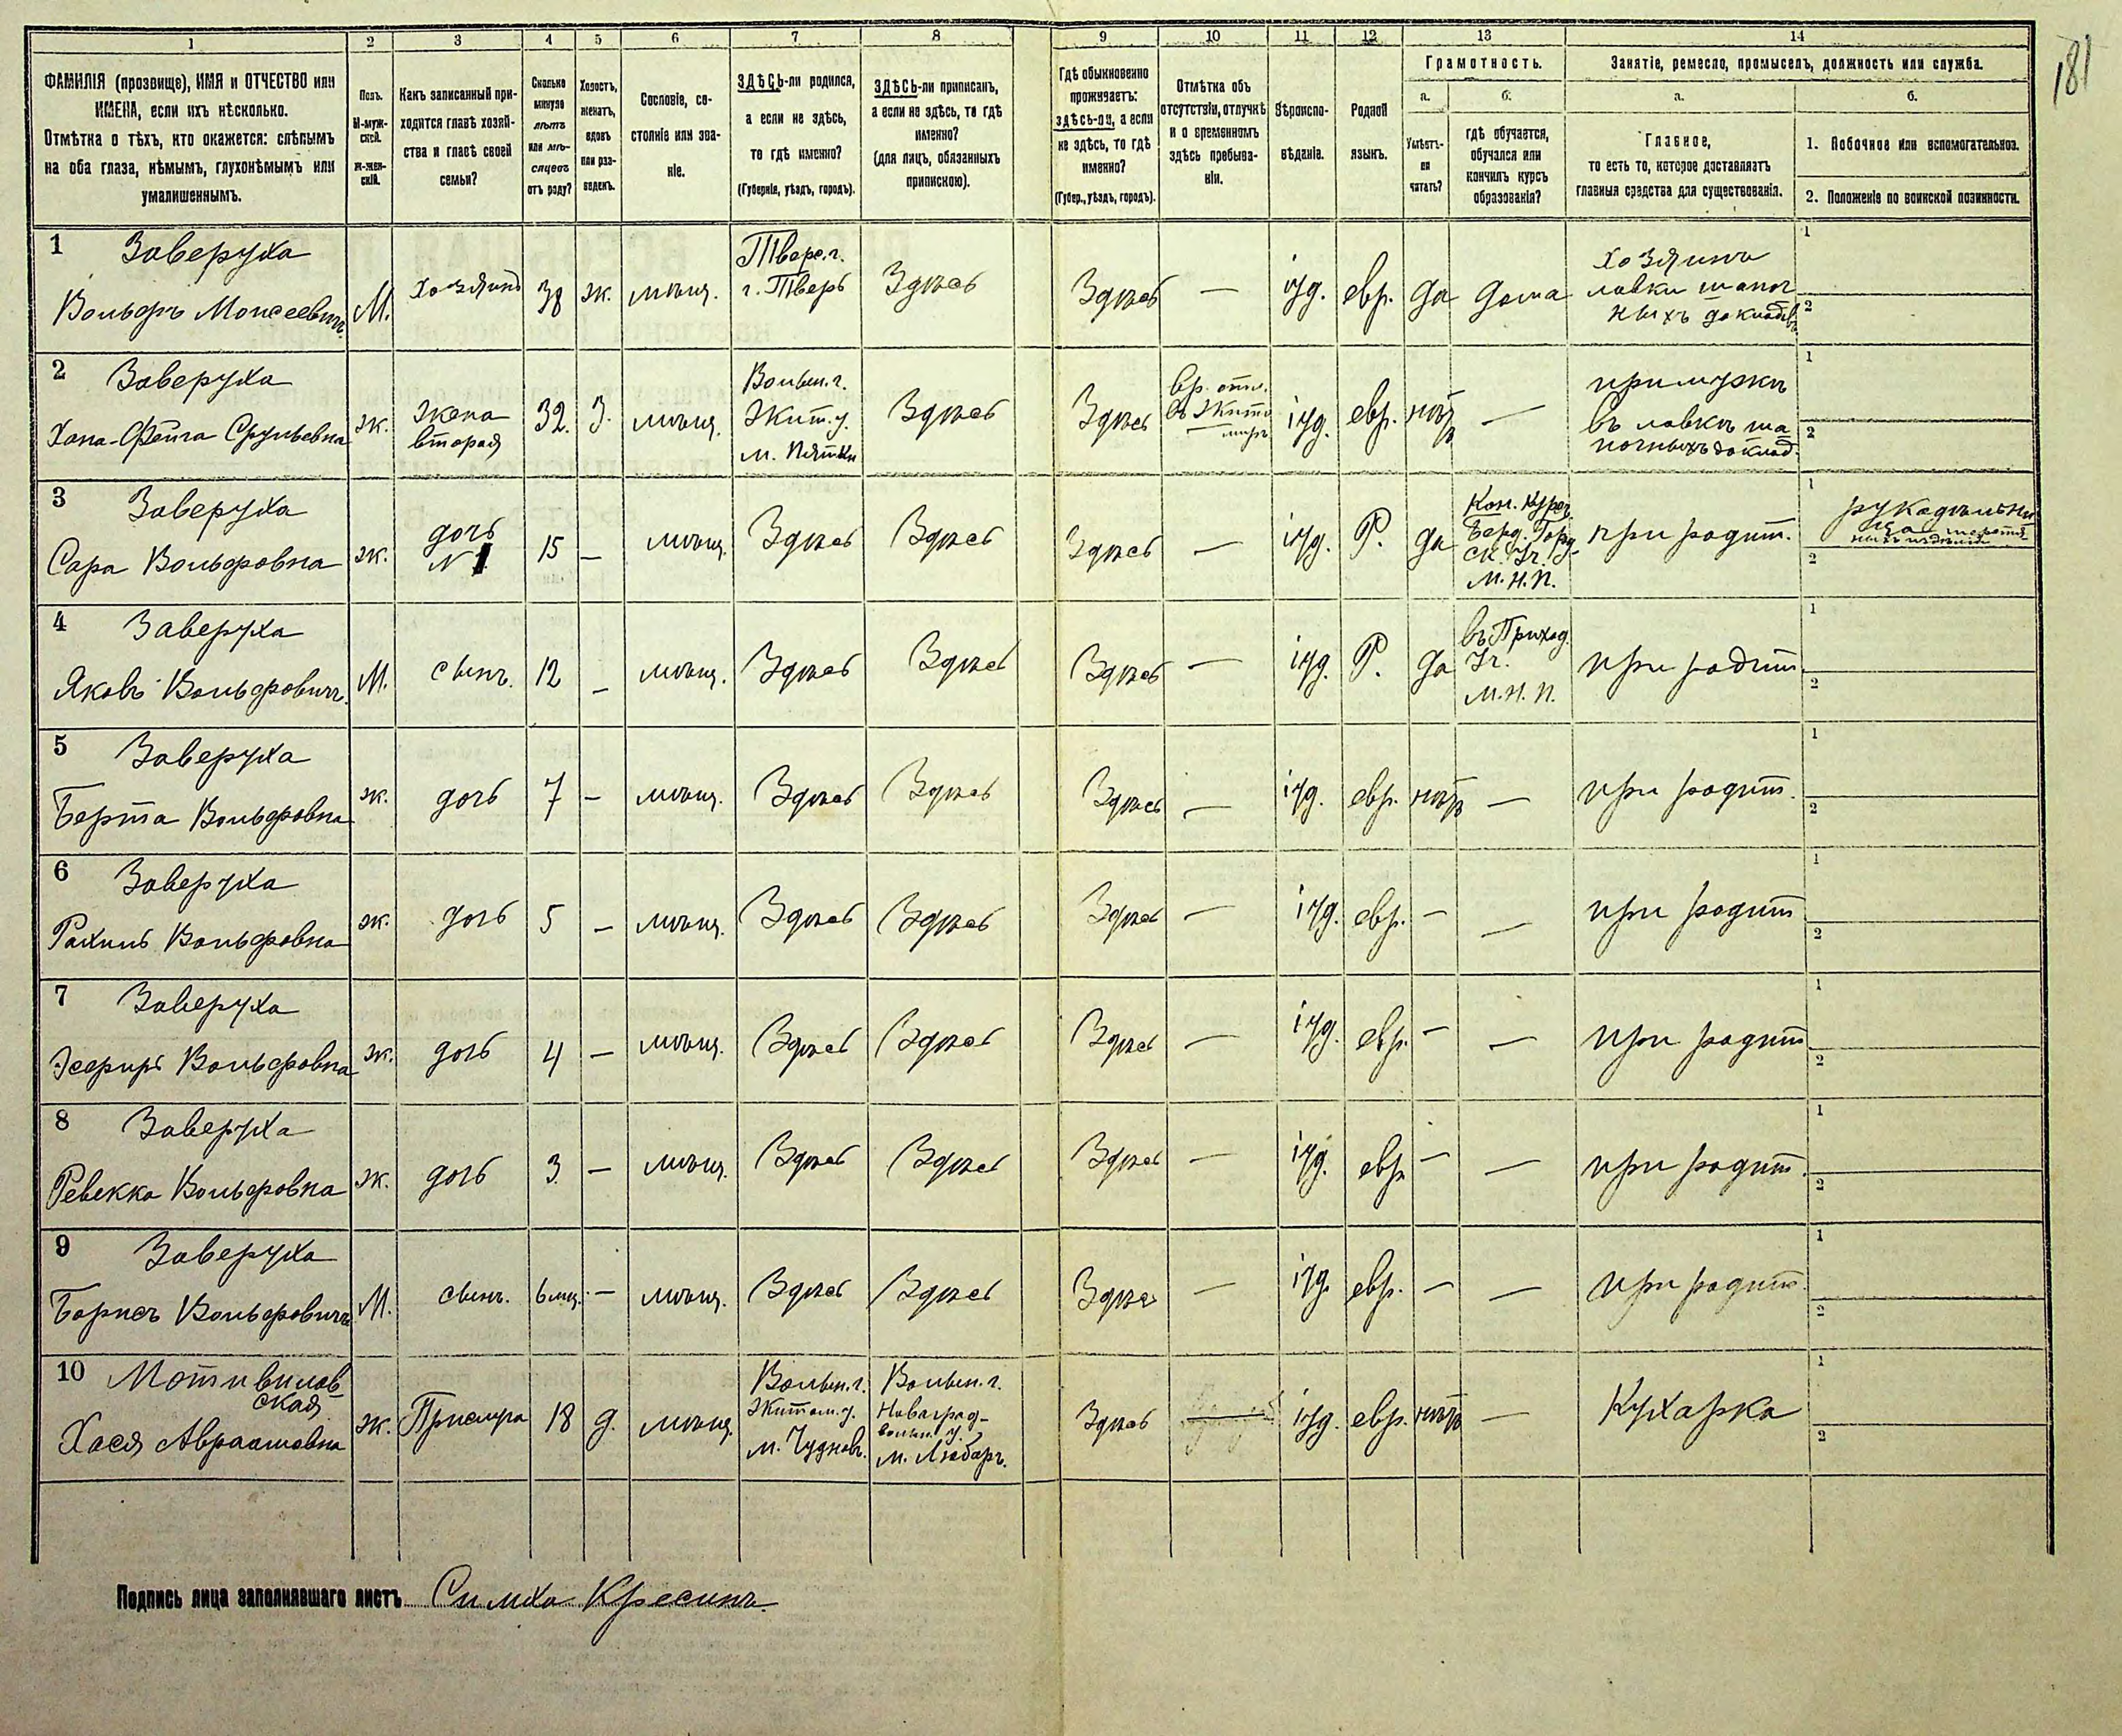 181
1 2 3 4 5 6 7 8 9 10 11 12 13 14
ФАМИЛІЯ (прозвище), ИМЯ и ОТЧЕСТВО или
ИМЕНА, если ихъ нѣсколько.
Отмѣтка о тѣхъ, кто окажется: слѣпымъ
на оба глаза, нѣмымъ, глухонѣмымъ или
умалишеннымъ.
Полъ.
М-муж-
ской.
ж-жен-
скій.
Какъ записанный при-
ходится главѣ хозяй-
ства и главѣ своей
семьи?
Сколько
минуло
лѣтъ
или мѣ-
сяцевъ
отъ роду?
Холостъ,
женатъ,
вдовъ
или раз-
веденъ.
Сословіе, со-
стояніе или зва-
ніе.
ЗДѢСЬ-ли родился,
а если не здѣсь,
то гдѣ именно?
(Губернія, уѣздъ, городъ).
ЗДѢСЬ-ли приписанъ,
а если не здѣсь, то гдѣ
именно?
(для лицъ, обязанныхъ
припискою).
Гдѣ обыкновенно
проживаетъ:
здѣсь-ли, а если
не здѣсь, то гдѣ
именно?
(Губер., уѣздъ, городъ).
Отмѣтка объ
отсутствіи, отлучкѣ
и о временномъ
здѣсь пребыва-
ніи.
Вѣроиспо-
вѣданіе.
Родной
языкъ.
Грамотность.
а.
Умѣетъ-
ли
читать?
б.
гдѣ обучается,
обучался или
кончилъ курсъ
образованія?
Занятіе, ремесло, промыселъ, должность или служба.
а.
Главное,
то есть то, которое доставляетъ
главныя средства для существованія.
б.
1. Побочное или вспомогательное.
2. Положеніе по воинской повинности.
1 Заверуха
Вольфъ Моисеевич
М.
Хозяинъ
38
ж.
мѣщ.
Твер. г.
г. Тверь
Здѣсь
Здѣсь
—
іуд.
евр.
да
дома
хозяинъ
лавки шапоч
ныхъ доклад
1
2
2 Заверуха
Хана-Фейга Срульевна
ж.
жена
вторая
32.
З.
мѣщ.
Волын. г.
Жит. у.
м. Пятки
Здѣсь
Здѣсь
Вр. отл.
въ Жито
миръ
іуд.
евр.
нѣтъ
—
при мужѣ
въ лавкѣ ша
почныхъ доклад.
1
2
3 Заверуха
Сара Вольфовна
ж.
дочь
N 1
15
—
мѣщ.
Здѣсь
Здѣсь
Здѣсь
—
іуд.
Р.
да
Кон. курс
Берд. Горд
ск. Уч.
М. Н. П.
при родит.
1
2
4 Заверуха
Яковъ Вольфович
М.
сынъ.
12
—
мѣщ.
Здѣсь
Здѣсь
Здѣсь
—
іуд.
Р.
да
въ Приход.
Уч.
М. Н. П.
при родит.
1
2
5 Заверуха
Берта Вольфовна
ж.
дочь
7
—
мѣщ.
Здѣсь
Здѣсь
Здѣсь
—
іуд.
евр.
нѣтъ
—
при родит.
1
2
6 Заверуха
Рахиль Вольфовна
ж.
дочь
5
—
мѣщ.
Здѣсь
Здѣсь
Здѣсь
—
іуд.
евр.
—
—
при родит
1
2
7 Заверуха
Эсфирь Вольфовна
ж.
дочь
4
—
мѣщ.
Здѣсь
Здѣсь
Здѣсь
—
іуд.
евр.
—
—
при родит
1
2
8 Заверуха
Ревекка Вольфовна
ж.
дочь
3
—
мѣщ.
Здѣсь
Здѣсь
Здѣсь
—
іуд.
евр
—
—
при родит.
1
2
9 Заверуха
Борисъ Вольфович
М.
сынъ.
6 мц.
—
мѣщ.
Здѣсь
Здѣсь
Здѣсь
—
іуд.
евр.
—
—
при родит.
1
2
10 Мотивилов
ская
Хася Авраамовна
ж.
Прислуга
18
д.
мѣщ.
Волын. г.
Житом. у.
м. Чудновъ.
Волын. г.
Новоград-
волын. у.
м. Любаръ.
Здѣсь
іуд.
евр.
нѣтъ
—
Кухарка
1
2
Подпись лица заполнявшаго листъ Симха Кресинъ